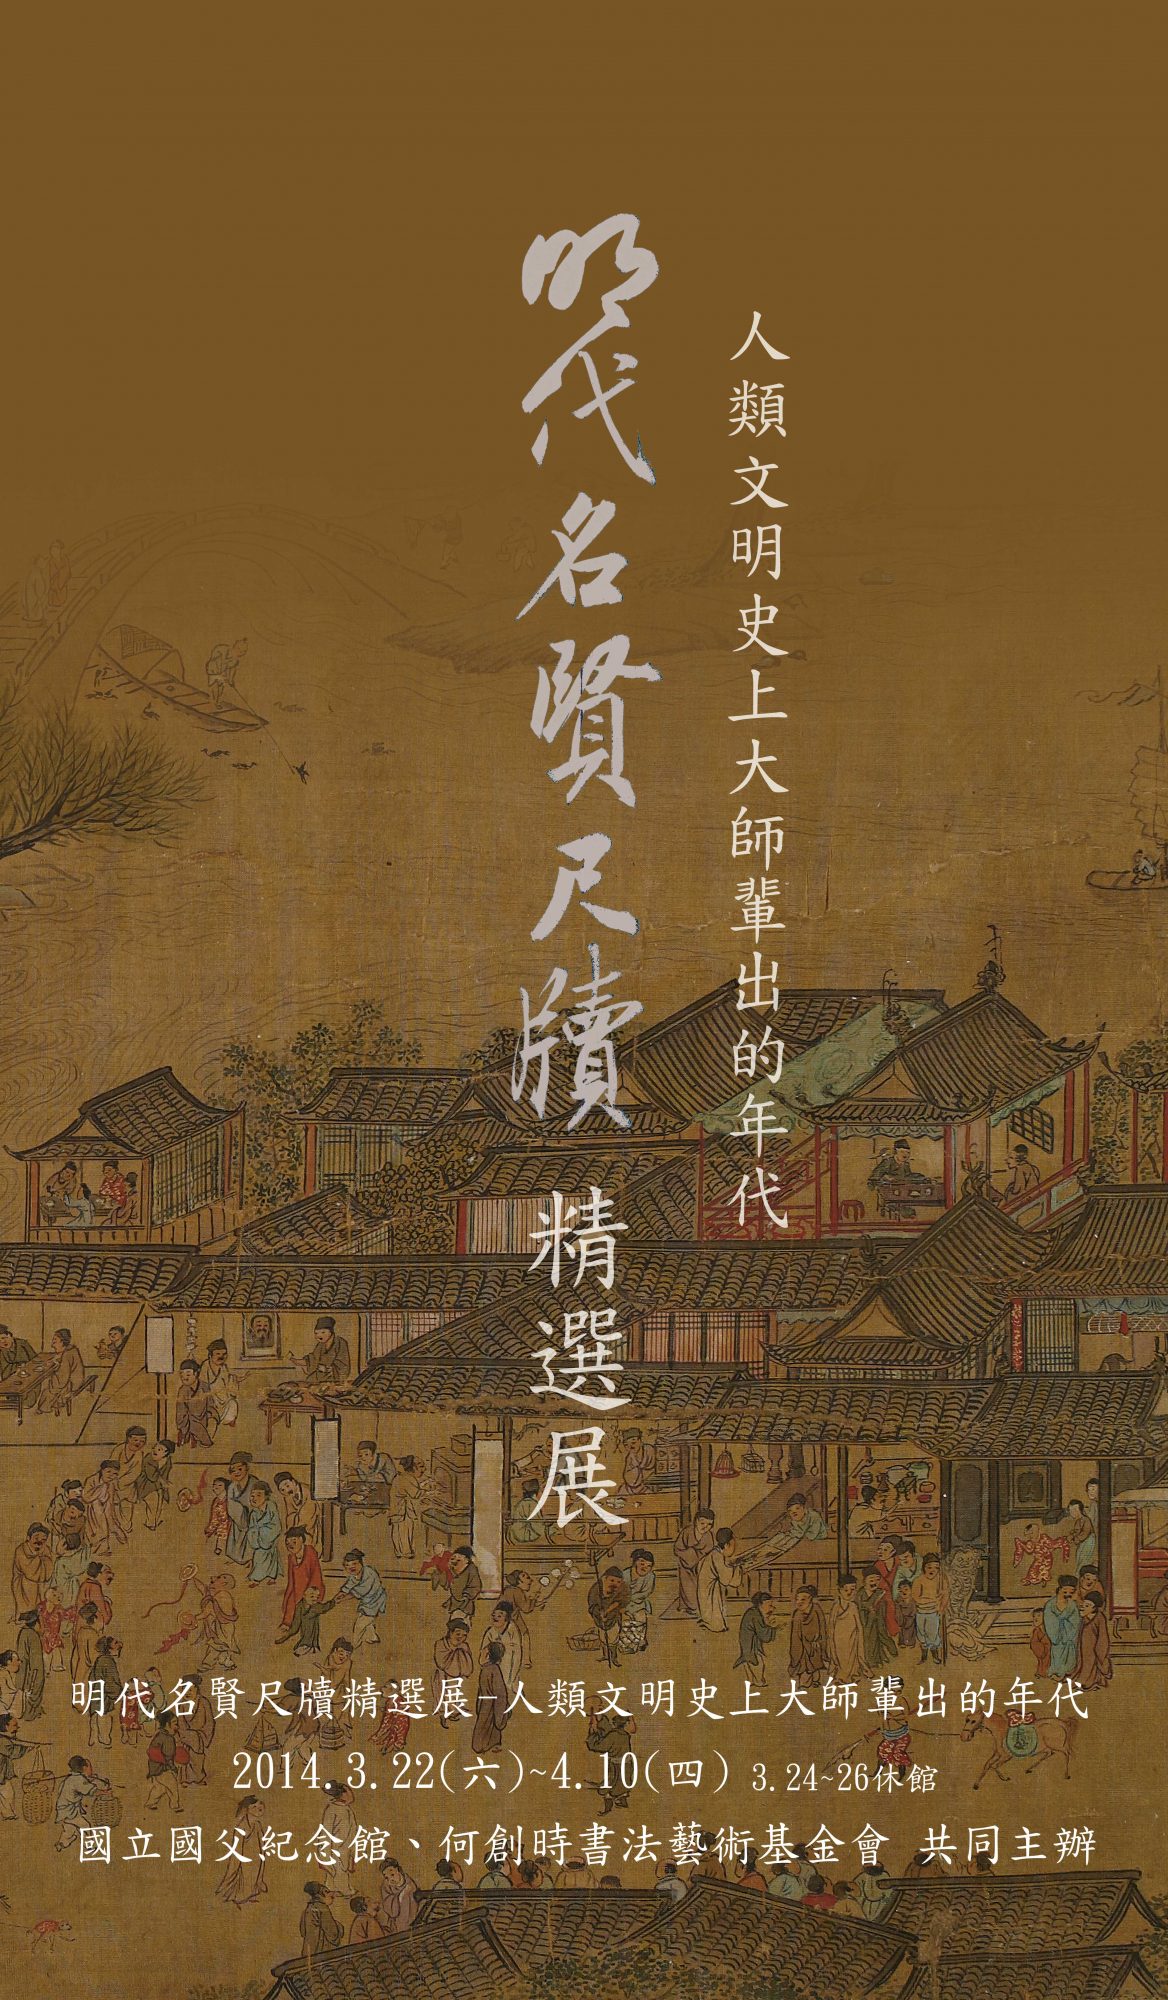 人類文明史上大師輩出的年代
明代名賢尺牘 精選展
明代名賢尺牘精選展-人類文明史上大師輩出的年代
2014.3.22(六)~4.10(四) 3.24~26休館
國立國父紀念館、何創時書法藝術基金會 共同主辦